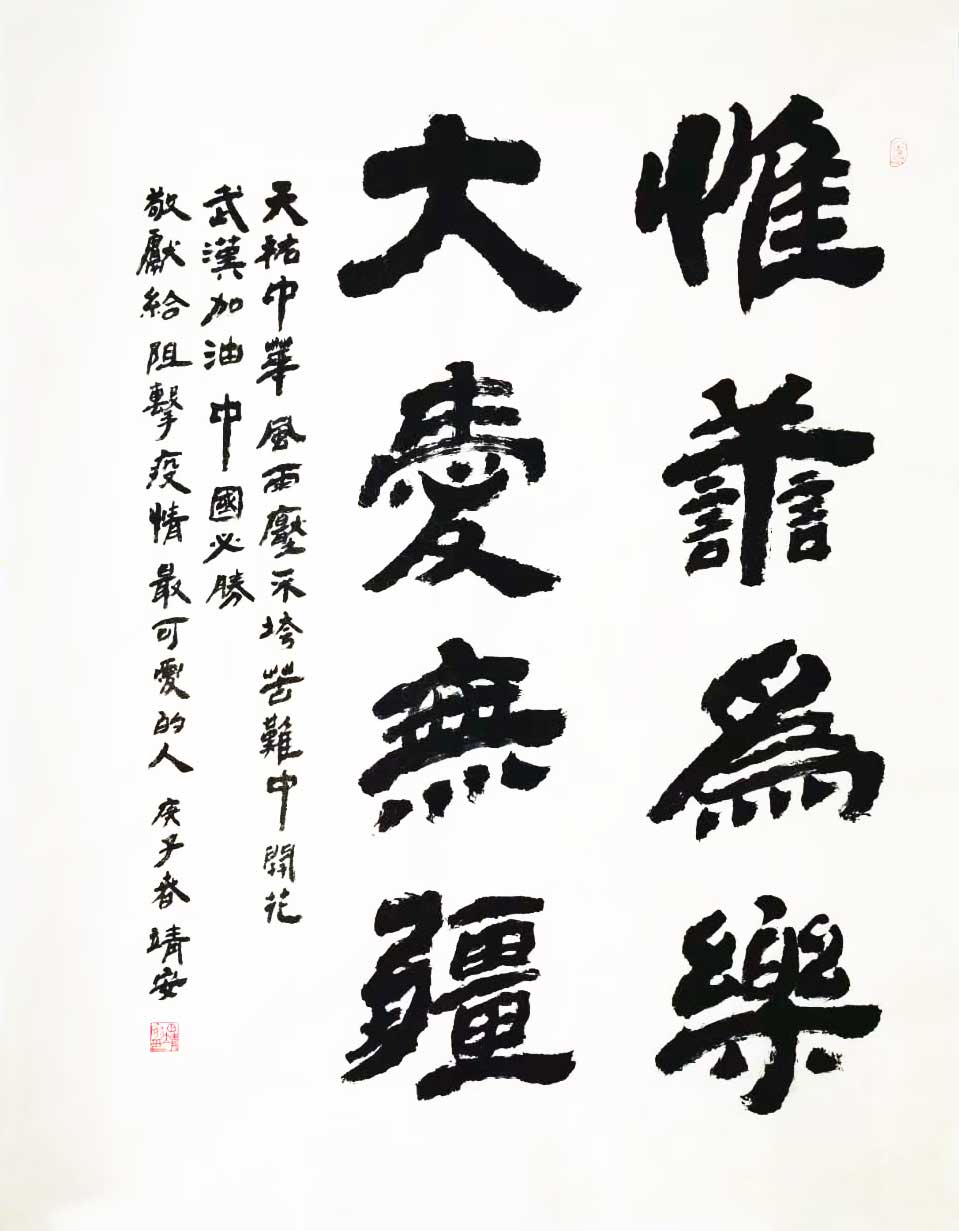 惟譱爲樂
大愛無疆
天祐中華風雨壓不垮苦難中開花
武漢加油中國必勝
敬獻給阻擊疫情最可愛的人 庚子春靖安